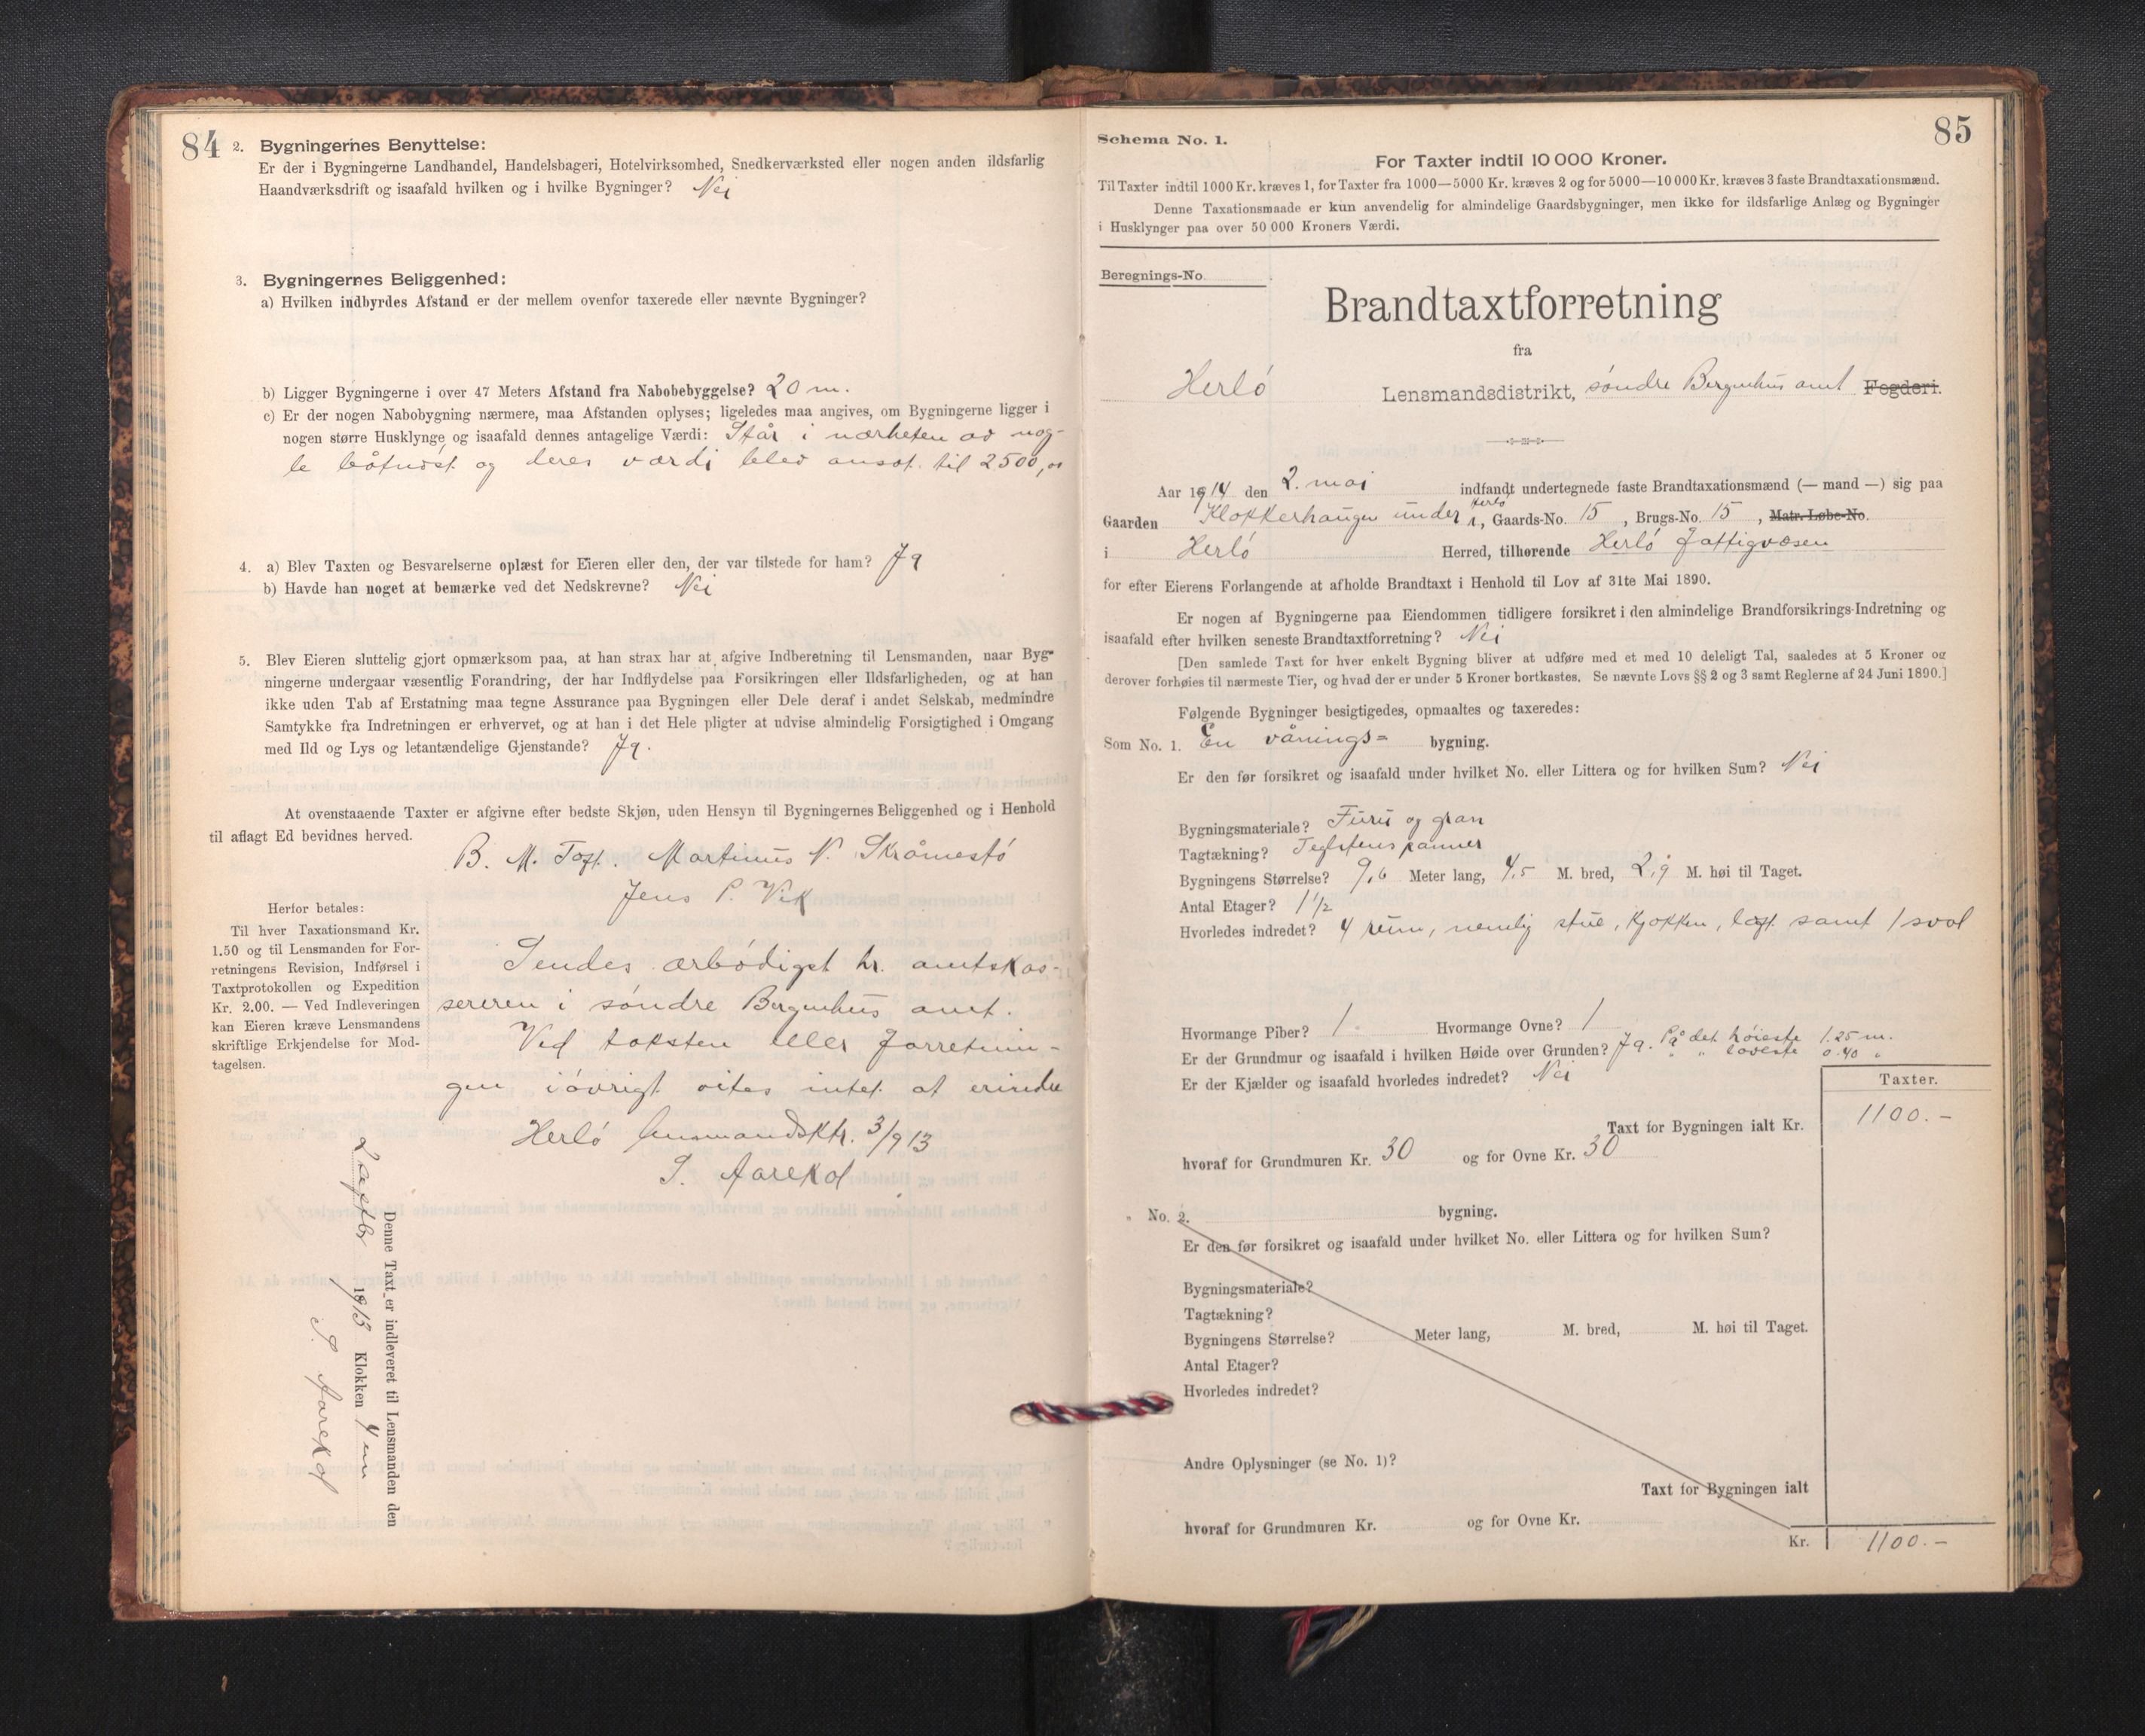 84
2. Bygningernes Benyttelse:
Er der i Bygningerne Landhandel, Handelsbageri, Hotelvirksomhed, Snedkerværksted eller nogen anden ildsfarlig
Haandværksdrift og isaafald hvilken og i hvilke Bygninger? Nei
3. Bygningernes Beliggenhed:
a) Hvilken indbyrdes Afstand er der mellem ovenfor taxerede eller nævnte Bygninger?
b) Ligger Bygningerne i over 47 Meters Afstand fra Nabobebyggelse? 20 m.
c) Er der nogen Nabobygning nærmere, maa Afstanden oplyses; ligeledes maa angives, om Bygningerne ligger i
nogen større Husklynge og isaafald dennes antagelige Værdi: Står i nærheten av nog-
le båtnøst og deres værdi blev ansat til 2500,00
4. a) Blev Taxten og Besvarelserne oplæst for Eieren eller den, der var tilstede for ham? Ja
b) Havde han noget at bemærke ved det Nedskrevne? Nei
5. Blev Eieren sluttelig gjort opmærksom paa, at han strax har at afgive Indberetning til Lensmanden, naar Byg-
ningerne undergaar væsentlig Forandring, der har Indflydelse paa Forsikringen eller Ildsfarligheden, og at han
ikke uden Tab af Erstatning maa tegne Assurance paa Bygningen eller Dele deraf i andet Selskab, medmindre
Samtykke fra Indretningen er erhvervet, og at han i det Hele pligter at udvise almindelig Forsigtighed i Omgang
med Ild og Lys og letantændelige Gjenstande? Ja.
At ovenstaaende Taxter er afgivne efter bedste Skjøn, uden Hensyn til Bygningernes Beliggenhed og i Henhold
til aflagt Ed bevidnes herved.
B. M. Toft. Martinus N. Skråmestø
Jens P. Vik
Herfor betales:
Til hver Taxationsmand Kr.
1.50 og til Lensmanden for For-
retningens Revision, Indførsel i
Taxtprotokollen og Expedition
Kr. 2.00. — Ved Indleveringen
kan Eieren kræve Lensmandens
skriftlige Erkjendelse for Mod-
tagelsen.
Sendes ærbødigst hr. amtskas-
sereren i søndre Bergenhus amt.
Ved taksten eller forretnin-
gen iøvrigt vites intet at erindre
Herlø lensmandsktr. 3/9 13
S. Aarekol
Denne Taxt er indleveret til Lensmanden den
2 septbr 1913 Klokken 4 em
S. Aarekol
85
Schema No. 1.
For Taxter indtil 10 000 Kroner.
Til Taxter indtil 1000 Kr. kræves 1, for Taxter fra 1000—5000 Kr. kræves 2 og for 5000—10 000 Kr. kræves 3 faste Brandtaxationsmænd.
Denne Taxationsmaade er kun anvendelig for almindelige Gaardsbygninger, men ikke for ildsfarlige Anlæg og Bygninger
i Husklynger paa over 50 000 Kroners Værdi.
Beregnings-No.
Brandtaxtforretning
fra
Herlö Lensmandsdistrikt, søndre Bergenhus amt Fogderi.
Aar 1914 den 2. mai indfandt undertegnede faste Brandtaxationsmænd (— mand —) sig paa
Gaarden Klokkerhaugen under Herlø, Gaards-No. 15, Brugs-No. 15, Matr. Løbe-No.
i Herlö Herred, tilhørende Herlö Fattigvæsen
for efter Eierens Forlangende at afholde Brandtaxt i Henhold til Lov af 31te Mai 1890.
Er nogen af Bygningerne paa Eiendommen tidligere forsikret i den almindelige Brandforsikrings-Indretning og
isaafald efter hvilken seneste Brandtaxtforretning? Nei
[Den samlede Taxt for hver enkelt Bygning bliver at udføre med et med 10 deleligt Tal, saaledes at 5 Kroner og
derover forhøies til nærmeste Tier, og hvad der er under 5 Kroner bortkastes. Se nævnte Lovs §§ 2 og 3 samt Reglerne af 24 Juni 1890.]
Følgende Bygninger besigtigedes, opmaaltes og taxeredes:
Som No. 1. En vånings= bygning.
Er den før forsikret og isaafald under hvilket No. eller Littera og for hvilken Sum? Nei
Bygningsmateriale? Furu og gran
Tagtækning? Teglstenspanner
Bygningens Størrelse? 9,6 Meter lang, 4,5 M. bred, 2,9 M. høi til Taget.
Antal Etager? 1 1/2
Hvorledes indredet? 4 rum, nemlig stue, kjøkken, loft samt 1 sval
Hvormange Piber? 1. Hvormange Ovne? 1
Er der Grundmur og isaafald i hvilken Høide over Grunden? Ja. På det høieste 1.25 m.
" " laveste 0.40 "
Er der Kjælder og isaafald hvorledes indredet? Nei
Taxter.
Taxt for Bygningen ialt Kr. 1100.-
hvoraf for Grundmuren Kr. 30 og for Ovne Kr. 30
" No. 2. bygning.
Er den før forsikret og isaafald under hvilket No. eller Littera og for hvilken Sum?
Bygningsmateriale?
Tagtækning?
Bygningens Størrelse? Meter lang, M. bred, M. høi til Taget.
Antal Etager?
Hvorledes indredet?
Andre Oplysninger (se No. 1)?
Taxt for Bygningen ialt
hvoraf for Grundmuren Kr. og for Ovne Kr.
Kr. 1100.-